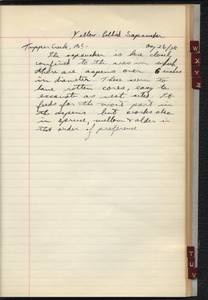 Yellow-Bellied Sapsucker
Tupper Creek, B.C. May 26/38
The sapsucker is here closely
confined to the area in which
there are aspens over 6 inches
in diameter. These seem to
have rotten cores, easy to
excavate as nest sites. It
feeds for the most part in
the aspens but works also
in spruce, willow & alder in
that order of preference
W
X
Y
Z
T
U
V